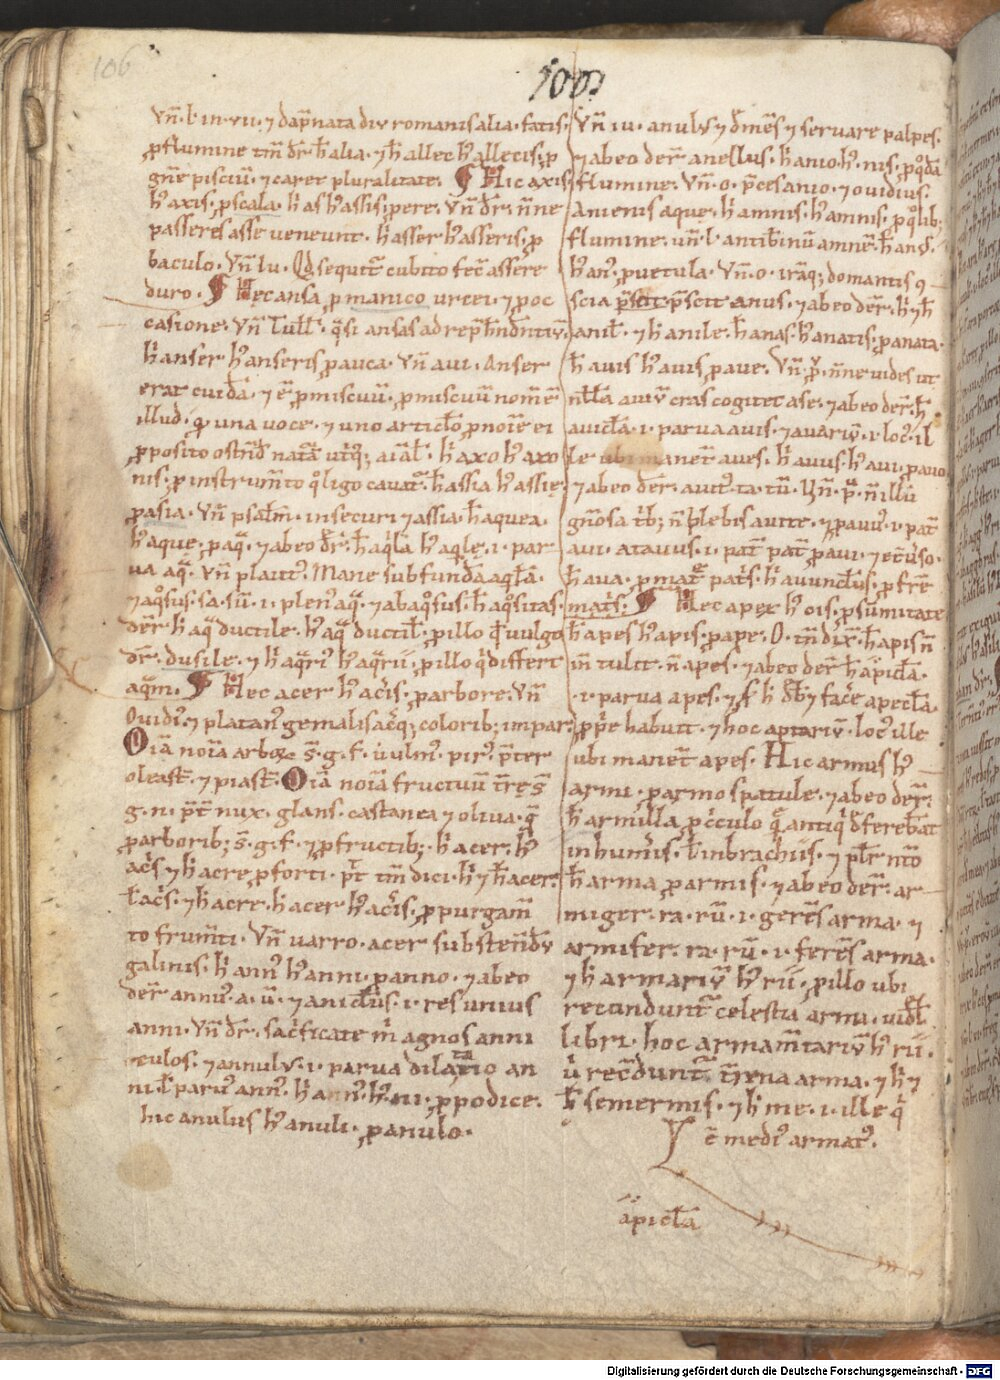 106
100
vn̄ · l · in · vii · ⁊ dap̄nata div romanis alia · fatis ·
ꝓ flumine tm̄ dr̄ · h̄ alia · ⁊ h̄ allec hꝰ allecis · ꝓ
gn̄e pisciū · ⁊ caret pluralitate · ¶ Hic axis
hꝰ axis · ꝓ scala · h̄ as hꝰ assis · pere · vn̄ dr̄ · nn̄e
passeres asse veneunt · h̄ asser hꝰ asseris · ꝓ
baculo · vn̄ lu · Qd̄ sequitr̄ cubito fec̄ assere
duro · ¶ Hec ansa ꝓ manico urcei · ⁊ ꝓ oc
casione · vn̄ Tull̄ · q̄si ansas ad
h̄ anser hꝰ anseris ꝓ auca · vn̄ avi · Anser
erat cuidā · ⁊ ē ꝓmiscuū · ꝓmiscuū nom̄
illud · qd̄ una voce · ⁊ uno articlo ꝓnoīe ei
p̄posito · h̄ axo hꝰ axo
nis · ꝓ instrum̄to · h̄ assia hꝰ assię
ꝓ asia · vn̄ psalm̄ · in securi ⁊ assia · h̄ aquea ·
hꝰ aque · ꝓ aq̄ · ⁊ ab eo dr̄ · h̄ aq̄la hꝰ aq̄le · i · par
va aq̄ · vn̄ plautꝰ · Mane subfundā aq̄lā ·
⁊ aq̊sus · sa · sū · i · plenꝰ aq̄ · ⁊ ab aq̊sus · h̄ aq̊sitas ·
der̄ h̄ aq̄ ductile · hꝰ aq̄ ductil̄ · ꝓ illo qd̄ vulgo
dr̄ · dusile · ⁊ h̄ aq̄riꝰ hꝰ aq̄rii · ꝓ illo qi differt
aq̄m · ¶ Hec acer hꝰ ac̄is · ꝓ arbore · vn̄
Ovidiꝰ · ⁊ platanꝰ gemalis acq̄; colorib; impar ·
Oīa noīa arboꝝ s̄ · g · f · ū ulmꝰ · pirꝰ · p̄ter
oleast̄ · ⁊ piast̄ · Oīa noīa fructuū s̄
g · n · p̄t nux · glans · castanea ⁊ oliva · q̄
ꝓ arborib; s̄ · g · f · ⁊ ꝓ fructib; · h̄ acer · hꝰ
ac̄s ⁊ h̄ acre ꝓ forti · p̄t tm̄ dici · h̄ ⁊ h̄ acer ·
h̄ ac̄s · ⁊ h̄ acre · h̄ acer hꝰ ac̄is · ꝓ purgam̄
to frum̄ti · vn̄ varro · acer substen̄dv̄
galinis · h̄ annꝰ hꝰ anni · ꝓ anno · ⁊ ab eo
der̄ annuꝰ · a · ū · ⁊ anicl̄us · i · res unius
anni · vn̄ dr̄ · sac̄ficate m̄ agnos anni
culos · ⁊ annulꝰ · i · parva dilatatio an
ni · l̄ parvꝰ annꝰ · h̄ anꝰ · hꝰ ni · ꝓ podice ·
hic anulus hꝰ anuli · ꝓ anulo ·
vn̄ iu · anulꝰ ⁊ ⁊ servare palpes ·
⁊ ab eo der̄ anellus · h̄ anio · hꝰ · nis · ꝓ qdā
flumine · vn̄ · o · p̄ces anio · ⁊ ovidius ·
Anienis aque · h̄ amnis · hꝰ amnis · ꝓ qolib;
flumine · vn̄ · l · amnē · h̄ anꝰ ·
hꝰ anꝰ · ꝓ vetula · vn̄ · o · iraq; domantis 9
scia p̄scit anus · ⁊ ab eo der̄ · h̄ ⁊ h̄
anil̄ · ⁊ h̄ anile · h̄ anas · hꝰ anatis · ꝓ anata ·
h̄ avis hꝰ avis ꝓ ave · vn̄ · ꝓv̄ · nn̄e vides ut
null̄a aviꝝ cras cogitet a se · ⁊ ab eo der̄ · h̄
avicl̄a · i · parva avis · ⁊ aviariū · i · locꝰ il
le ubi manen̄t aves · h̄ avus · hꝰ avi · ꝓ avo
⁊ ab eo der̄ · avitꝰ · ta · tū · vn̄ · p̄ · n̄ illū
gn̄osa tb; n̄ plebis avite · ⁊ ꝓavꝰ · i · pat̄
avi · atavus · i · pat̄ pat̄ ꝓavi · ⁊ ec̄vso ·
h̄ ava · ꝓ mat̄ pat̄s · h̄ avunclus · ꝓ fr̄e
mat̄s · ¶ Hec apex hꝰ cis · ꝓ sūmitate
h̄ apes hꝰ apis · ꝓ ape · O · tn̄ dix̄ · h̄ apis n̄
in tulit · n̄ apes · ⁊ ab eo der̄ h̄ āpicl̄a ·
· i · parva apes · ⁊ face apecl̄a ·
ꝓp̄e habuit · ⁊ hoc apiariū · locꝰ ille
ubi manen̄t apes · Hic armus hꝰ
armi · ꝓ armo spatule · ⁊ ab eo der̄ ·
h̄ armilla ꝓ c̄culo q̄ antiq̄ deferebāt
in hum̄is · l̄ in brachiis · ⁊
h̄ arma ꝓ armis · ⁊ ab eo der̄ · ar
miger · ra · rū · i · gerēs arma · ⁊
armifer · ra · rū · i · ferēs arma ·
⁊ h̄ armariū hꝰ rii · ꝓ illo ubi
reconduntr̄ celestia arma · videl̄
libri · hoc armam̄tariū hꝰ rii ·
ū recōduntr̄ trena arma · ⁊ h̄ ⁊
h̄ semermis · ⁊ h̄ me · i · ille qi
ē mediꝰ armatꝰ ·
āpicl̄a
Digitalisierung gefördert durch die Deutsche Forschungsgemeinschaft - DFG